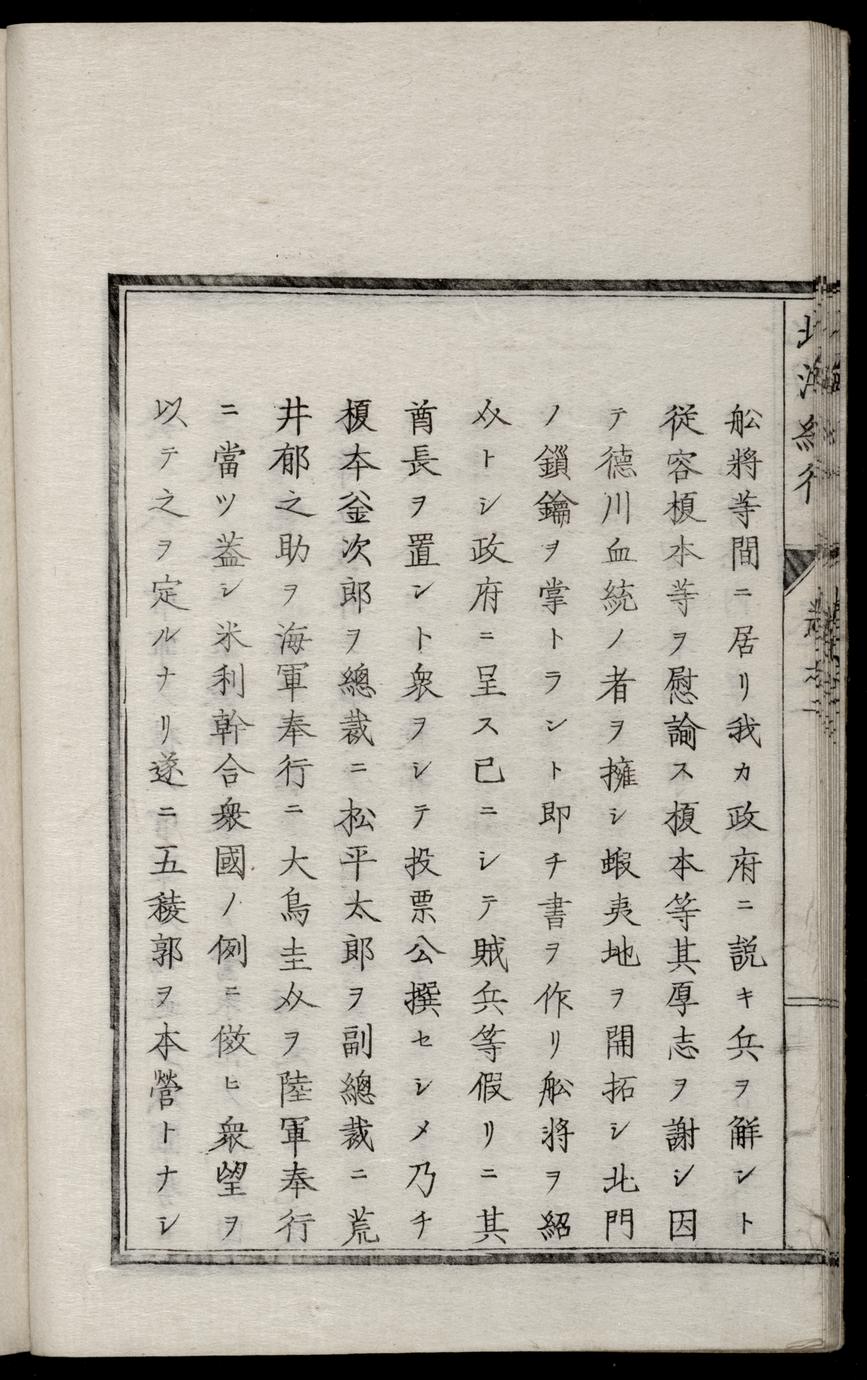 舩將等間ニ居リ我カ政府ニ説キ兵ヲ解シト
従容榎本等ヲ慰諭ス榎本等其厚志ヲ謝シ因
テ德川血統ノ者ヲ擁シ蝦夷地ヲ開拓シ北門
ノ鎖鑰ヲ掌トラシト即チ書ヲ作リ舩將ヲ紹
介トシ政府ニ呈ス已ニシテ賊兵等假リニ其
酋長ヲ置ント衆ヲシテ投票公撰セシメ乃チ
榎本釜次郎ヲ總裁ニ松平太郎ヲ副總裁ニ荒
井郁之助ヲ海軍奉行ニ大鳥圭介ヲ陸軍奉行
ニ當ツ葢シ米利幹合衆國ノ例ニ倣ヒ衆望ヲ
以テ之ヲ定ルナリ遂ニ五稜郭ヲ本營トナシ
北海紀行